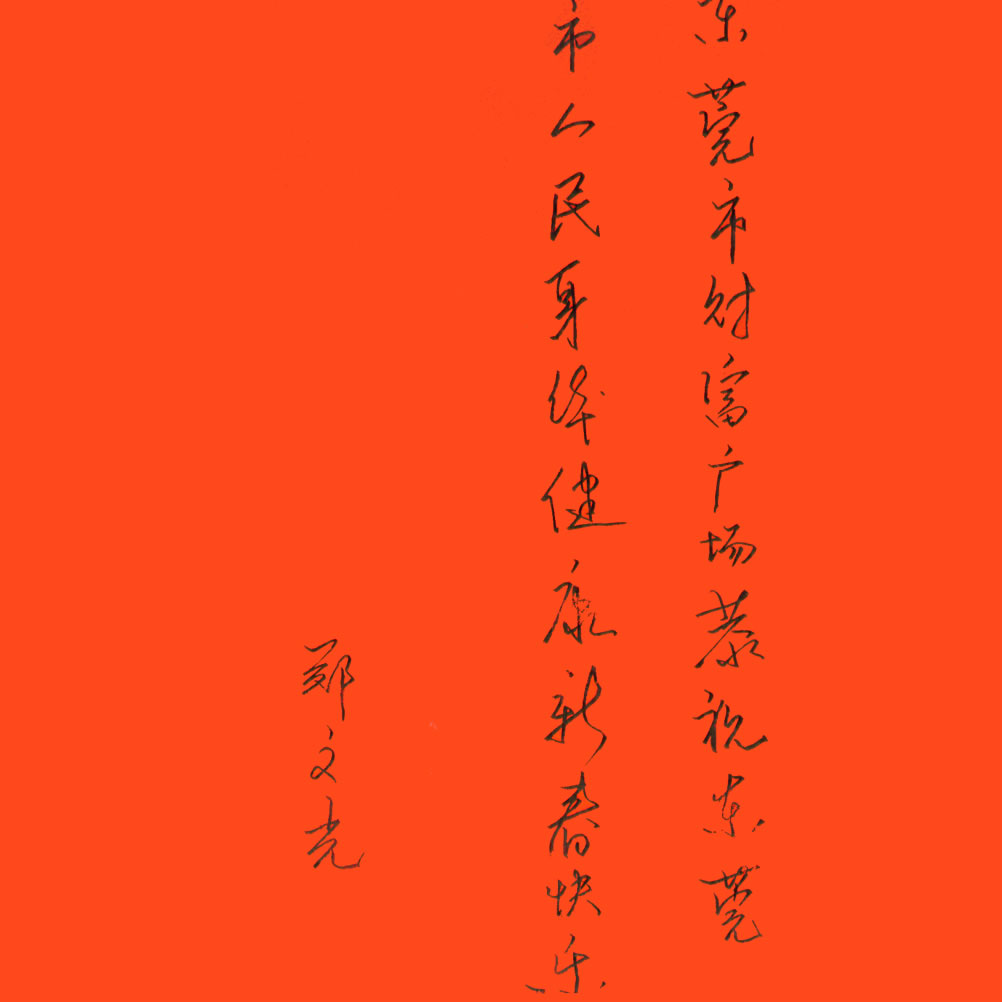 东莞市财富广场恭祝东莞
市人民身体健康新春快乐
郑文光